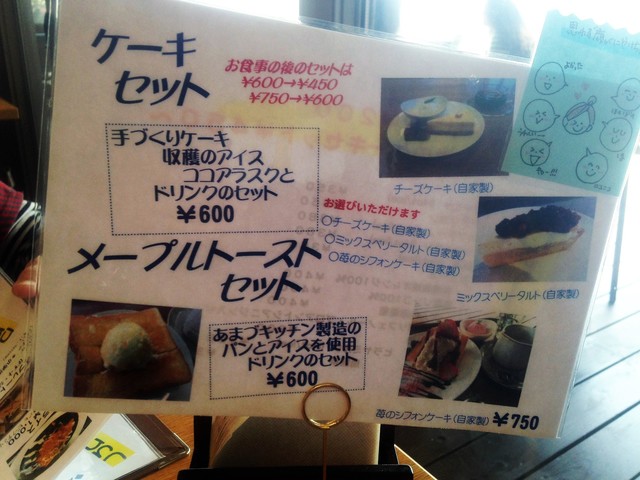 ケーキ
セット
お食事の後のセットは
¥600→¥450
¥750→¥600
手づくりケーキ
収穫のアイス
ココアラスクと
ドリンクのセット
¥600
チーズケーキ(自家製)
お選びいただけます
○チーズケーキ(自家製)
○ミックスベリータルト(自家製)
○苺のシフォンケーキ(自家製)
ミックスベリータルト(自家製)
メープルトースト
セット
あまづキッチン製造の
パンとアイスを使用
ドリンクのセット
¥600
苺のシフォンケーキ(自家製) ¥750